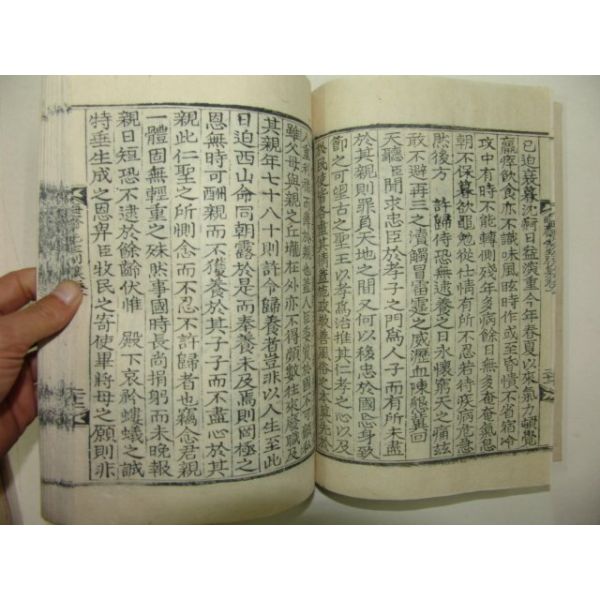 已迫衰暮沈痾日益演重今年春夏以來氣力頓覺
羸瘁飲食亦不識味風眩時作或至昏憒不省宿冷
攻中有時不能轉側殘年多病餘日無多奄奄氣息
朝不保暮欲黽勉從仕情有所不忍若待疾病危急
然後方 許歸侍恐無逮養之日永懷窮天之痛玆
敢不避再三之瀆觸冒雷霆之威瀝血陳懇冀回
天聽臣聞求忠臣於孝子之門爲人子而有所未盡
於其親則罪負天地之間又何以移忠於國忘身致
節之可望古之聖王以孝爲治推其仁孝之心以及
於民使之各盡其情養施政敎善風俗之本莫先於
雖父母與親之丘壠在外亦不得頻數往來廢職及
其親年七十八十則許令歸養者豈非以人生至此
日迫西山命同朝露於是而奉養未及焉則罔極之
恩無時可酬親而不獲養於其子子而不盡心於其
親此仁聖之所惻念而不忍不許歸者也竊念君親
一體固無輕重之殊然事國時長尚捐軀而未晚報
親日短恐不逮於餘齡伏惟 殿下哀矜螻蟻之誠
特垂生成之恩畀臣牧民之寄使畢將母之願則非